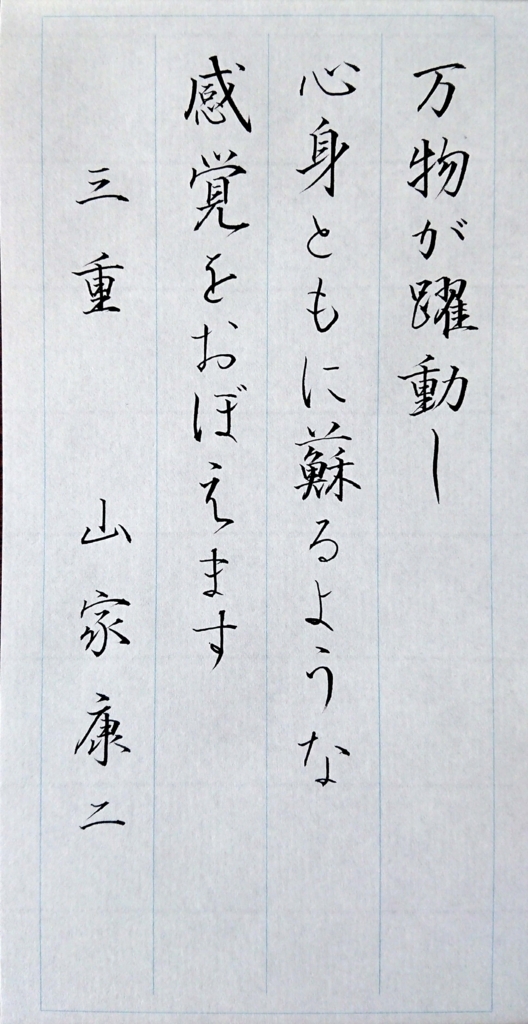 万物が躍動し
心身ともに蘇るような
感覚をおぼえます
三重 山家康二